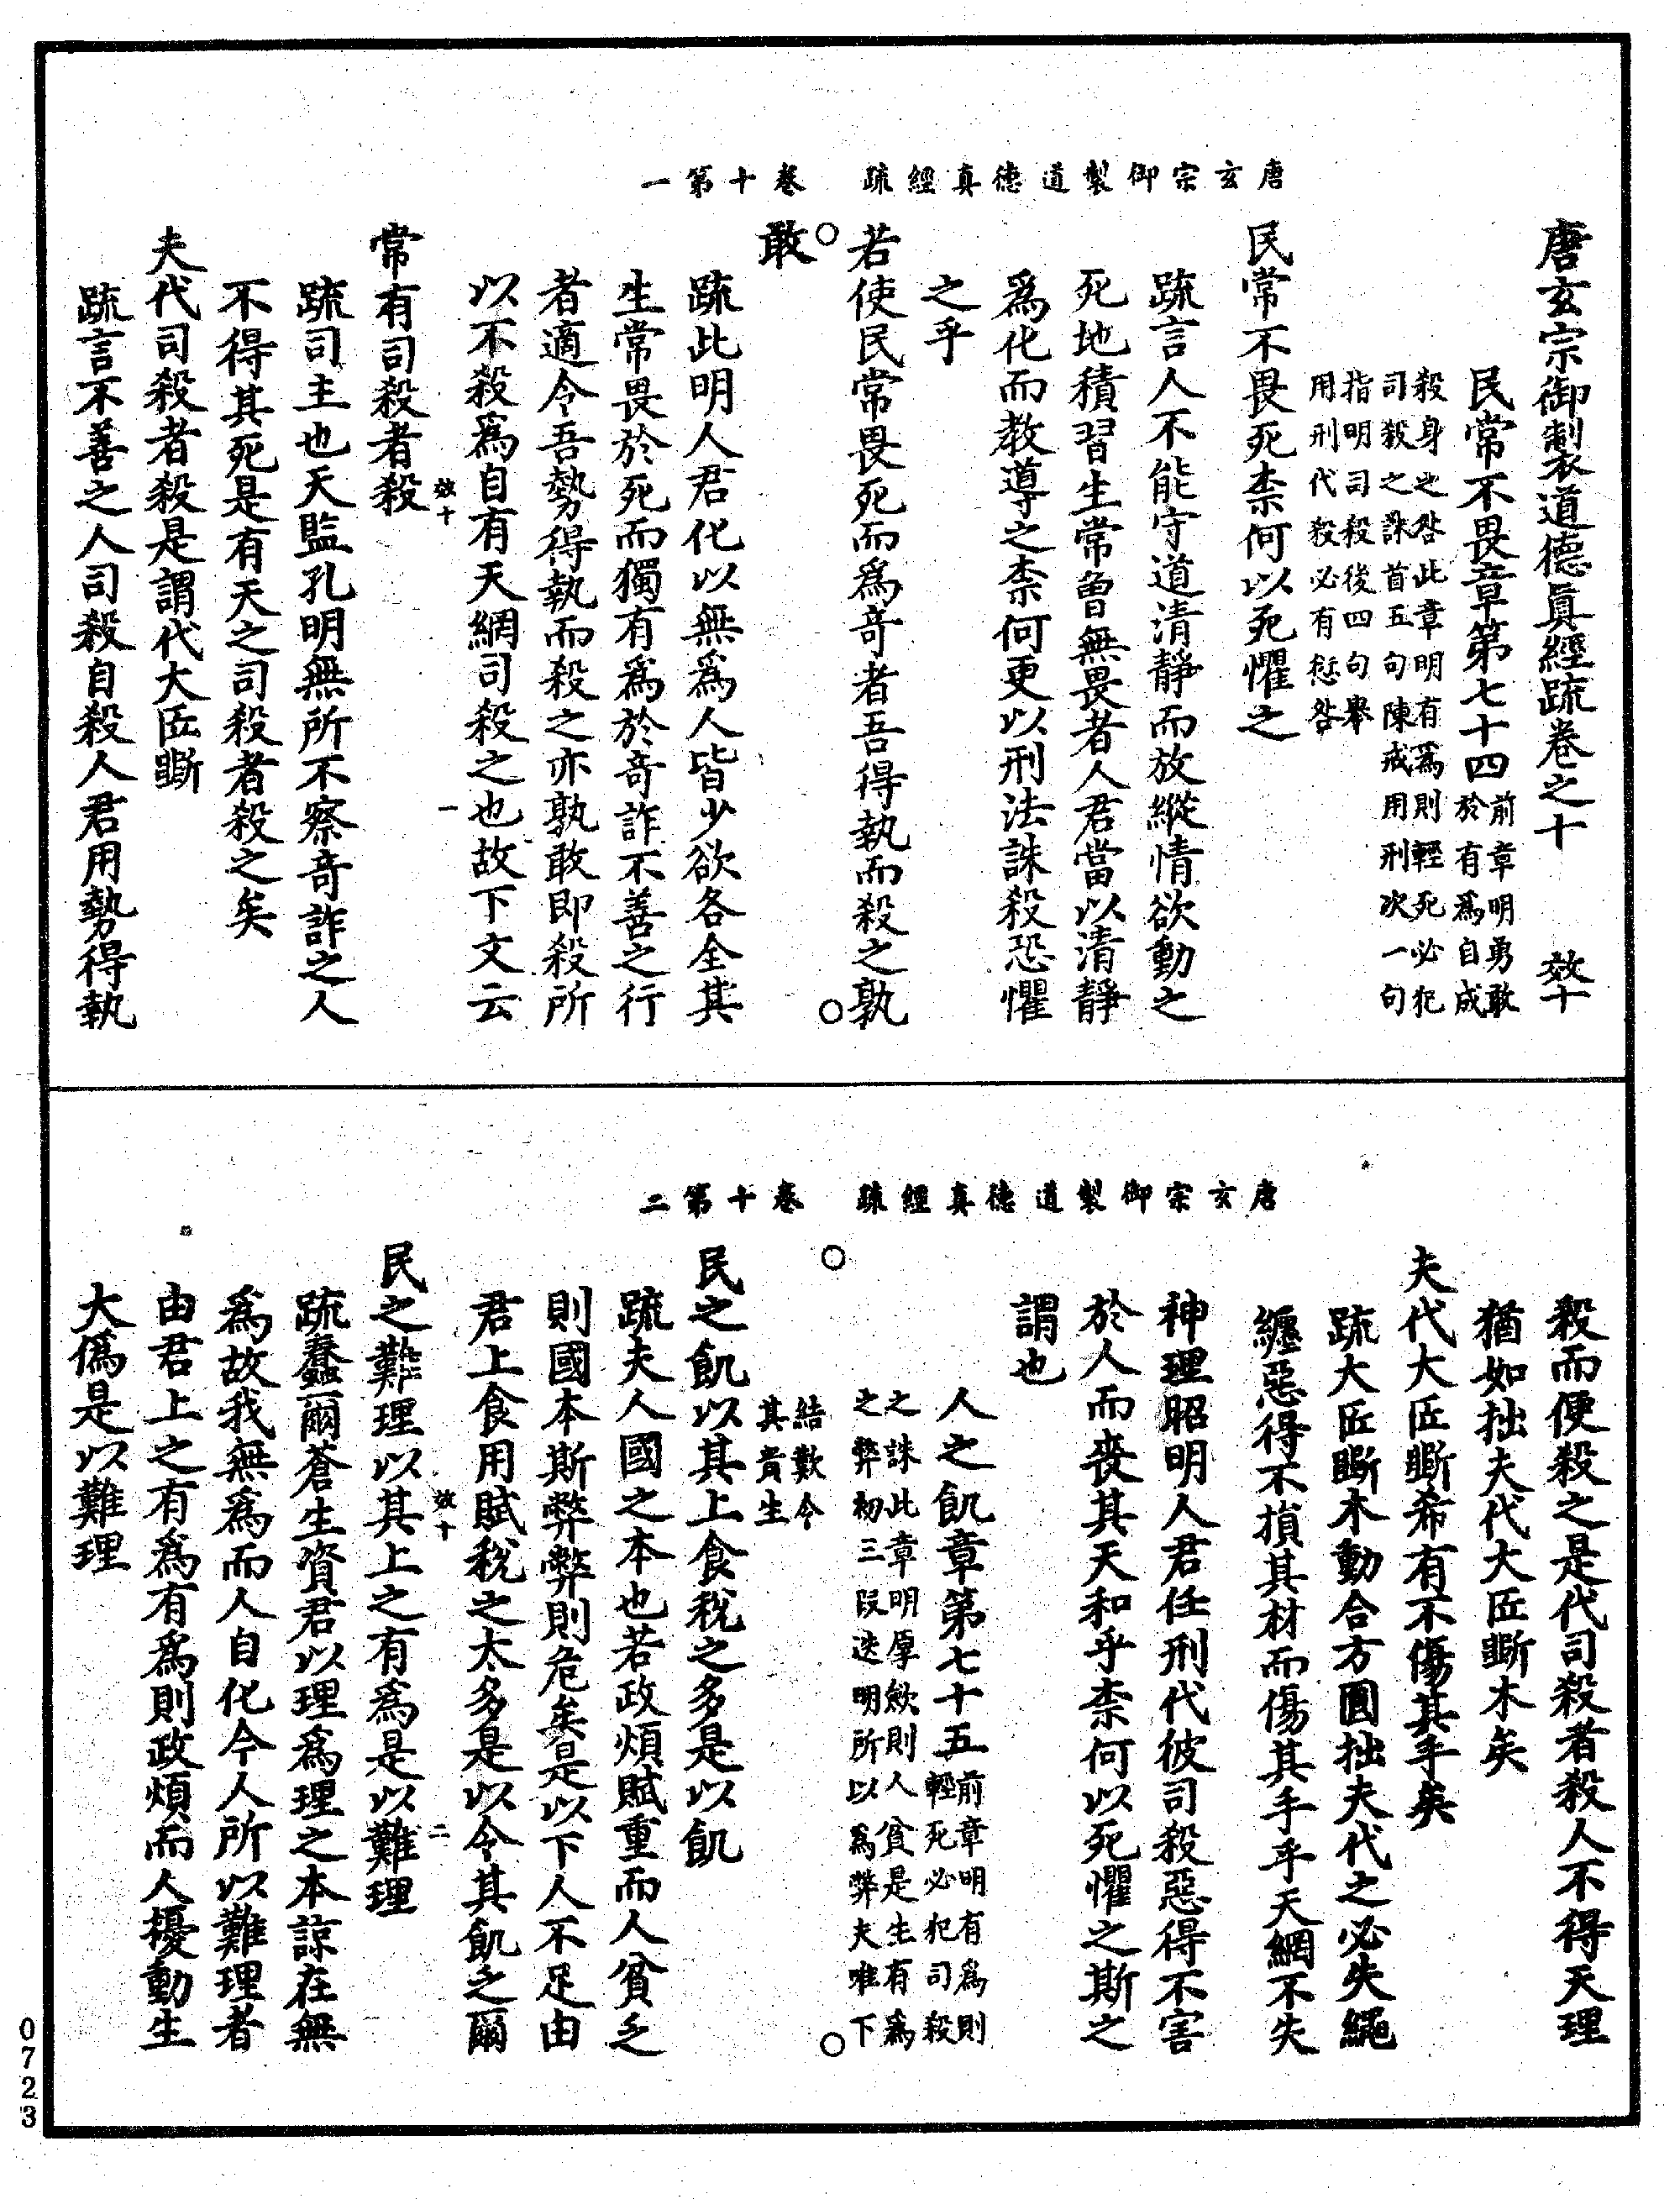 唐玄宗御製道德真經疏　卷十第一
唐玄宗御製道德眞經疏卷之十　效十
民常不畏章第七十四
前章明勇敢
於有爲自成
殺身之咎此章明有爲則輕死必犯
司殺之誅首五句陳戒用刑次一句
指明司殺後四句舉
用刑代殺必有愆咎
民常不畏死柰何以死懼之
疏言人不能守道清靜而放縱情欲動之
死地積習生常曾無畏者人君當以清靜
爲化而教導之柰何更以刑法誅殺恐懼
之乎
若使民常畏死而爲奇者吾得執而殺之孰
敢
疏此明人君化以無爲人皆少欲各全其
生常畏於死而獨有爲於奇詐不善之行
者適令吾勢得執而殺之亦孰敢即殺所
以不殺爲自有天網司殺之也故下文云
效十　一
常有司殺者殺
疏司主也天監孔明無所不察奇詐之人
不得其死是有天之司殺者殺之矣
夫代司殺者殺是謂代大匠斲
疏言不善之人司殺自殺人君用勢得執
唐玄宗御製道德真經疏　卷十第二
殺而便殺之是代司殺者殺人不得天理
猶如拙夫代大匠斲木矣
夫代大匠斲希有不傷其手矣
疏大匠斲木動合方圓拙夫代之必失繩
纏惡得不損其材而傷其手乎天網不失
神理昭明人君任刑代彼司殺惡得不害
於人而喪其天和乎柰何以死懼之斯之
謂也
人之飢章第七十五
前章明有爲則
輕死必犯司殺
之誅此章明厚斂則人貧是生有爲
之弊初三段迭明所以爲弊夫唯下
結歎令
其貴生
民之飢以其上食稅之多是以飢
疏夫人國之本也若政煩賦重而人貧乏
則國本斯弊弊則危矣是以下人不足由
君上食用賦稅之太多是以令其飢之爾
效十　二
民之難理以其上之有爲是以難理
疏蠢爾蒼生資君以理爲理之本諒在無
爲故我無爲而人自化令人所以難理者
由君上之有爲有爲則政煩而人擾動生
大僞是以難理
0723